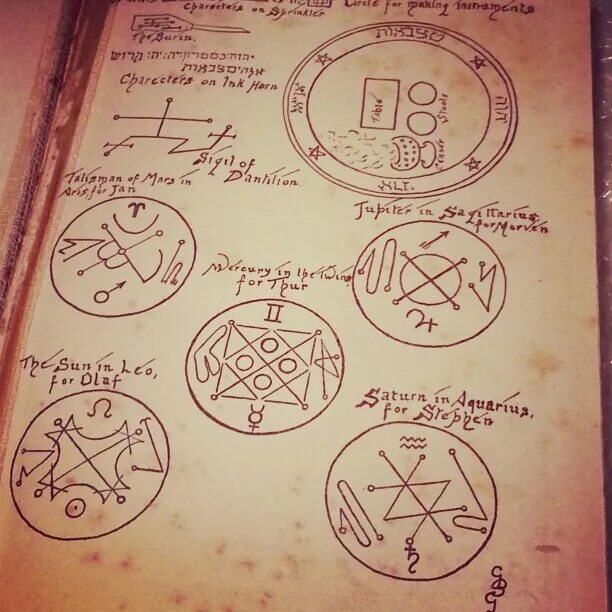 Characters on Sprinkler
Circle for making instruments
The Burin.
אלהים צבאות
Charecters on Ink Horn
צבאות
יהוה
Table
Stools
Censer
Sigil of
Dantilion
Talisman of Mars in
Aris, for Jan
Jupiter in Sagittarius,
for Morven
Mercury in the Twins
for Thur
The Sun in Leo,
for Olaf
Saturn in Aquarius,
for Stephen